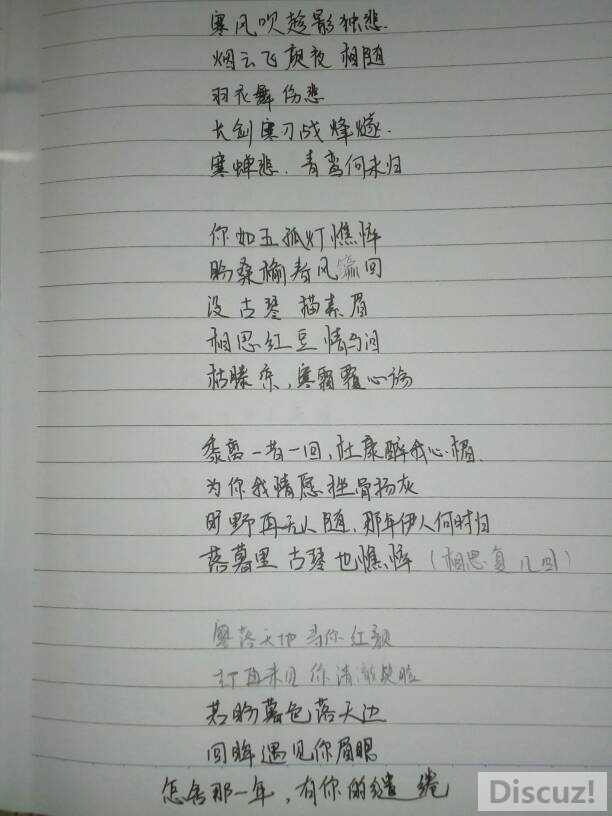 寒风吹趁影独悲.
烟云飞夜相随
羽衣舞伤悲
长剑寒刃战烽燧.
寒蝉悲.青鸾何未归
你如五孤灯憔悴
盼桑榆春风回
没古琴描素眉
相思红豆情与泪
枯藤亲,寒霜覆心
黍离一昔一回,杜康醉我心楣.
为你我情愿挫骨扬灰
旷野再无人随,那年伊人何时归
落暮里古琴也憔悴(相思复几回)
零落天地为你红颜
再未见你清澈笑脸
若盼暮色落天边
回眸遇见你眉眼
怎舍那一年,有你的缱绻
Discuz!